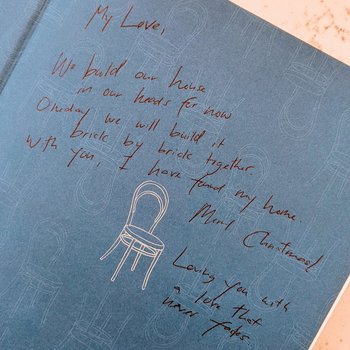 My Love,
We build our house
in our heads for now
One day we will build it
brick by brick together
With you, I have found my home.
Loving you with
a love that
never fades